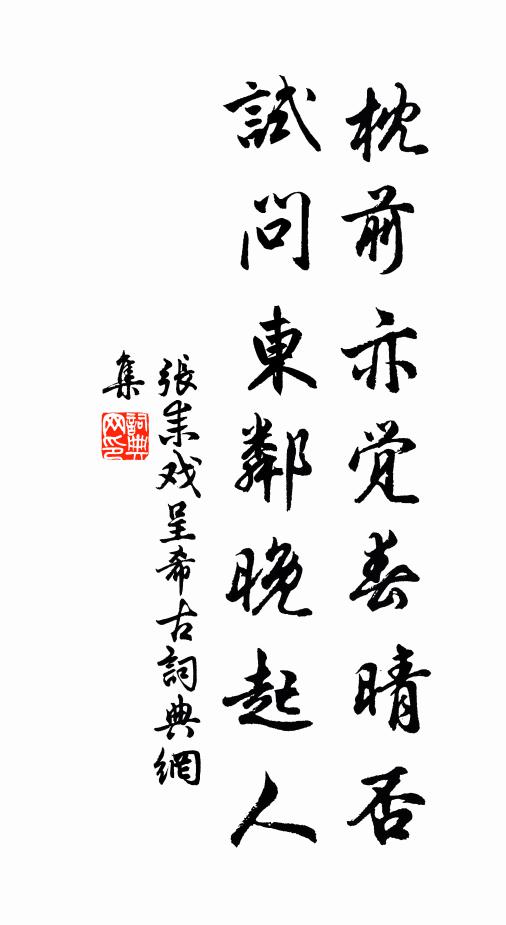 枕前亦觉春晴否
試问東鄰晚起人
張耒戏呈希古詞典網
集
詞典网印